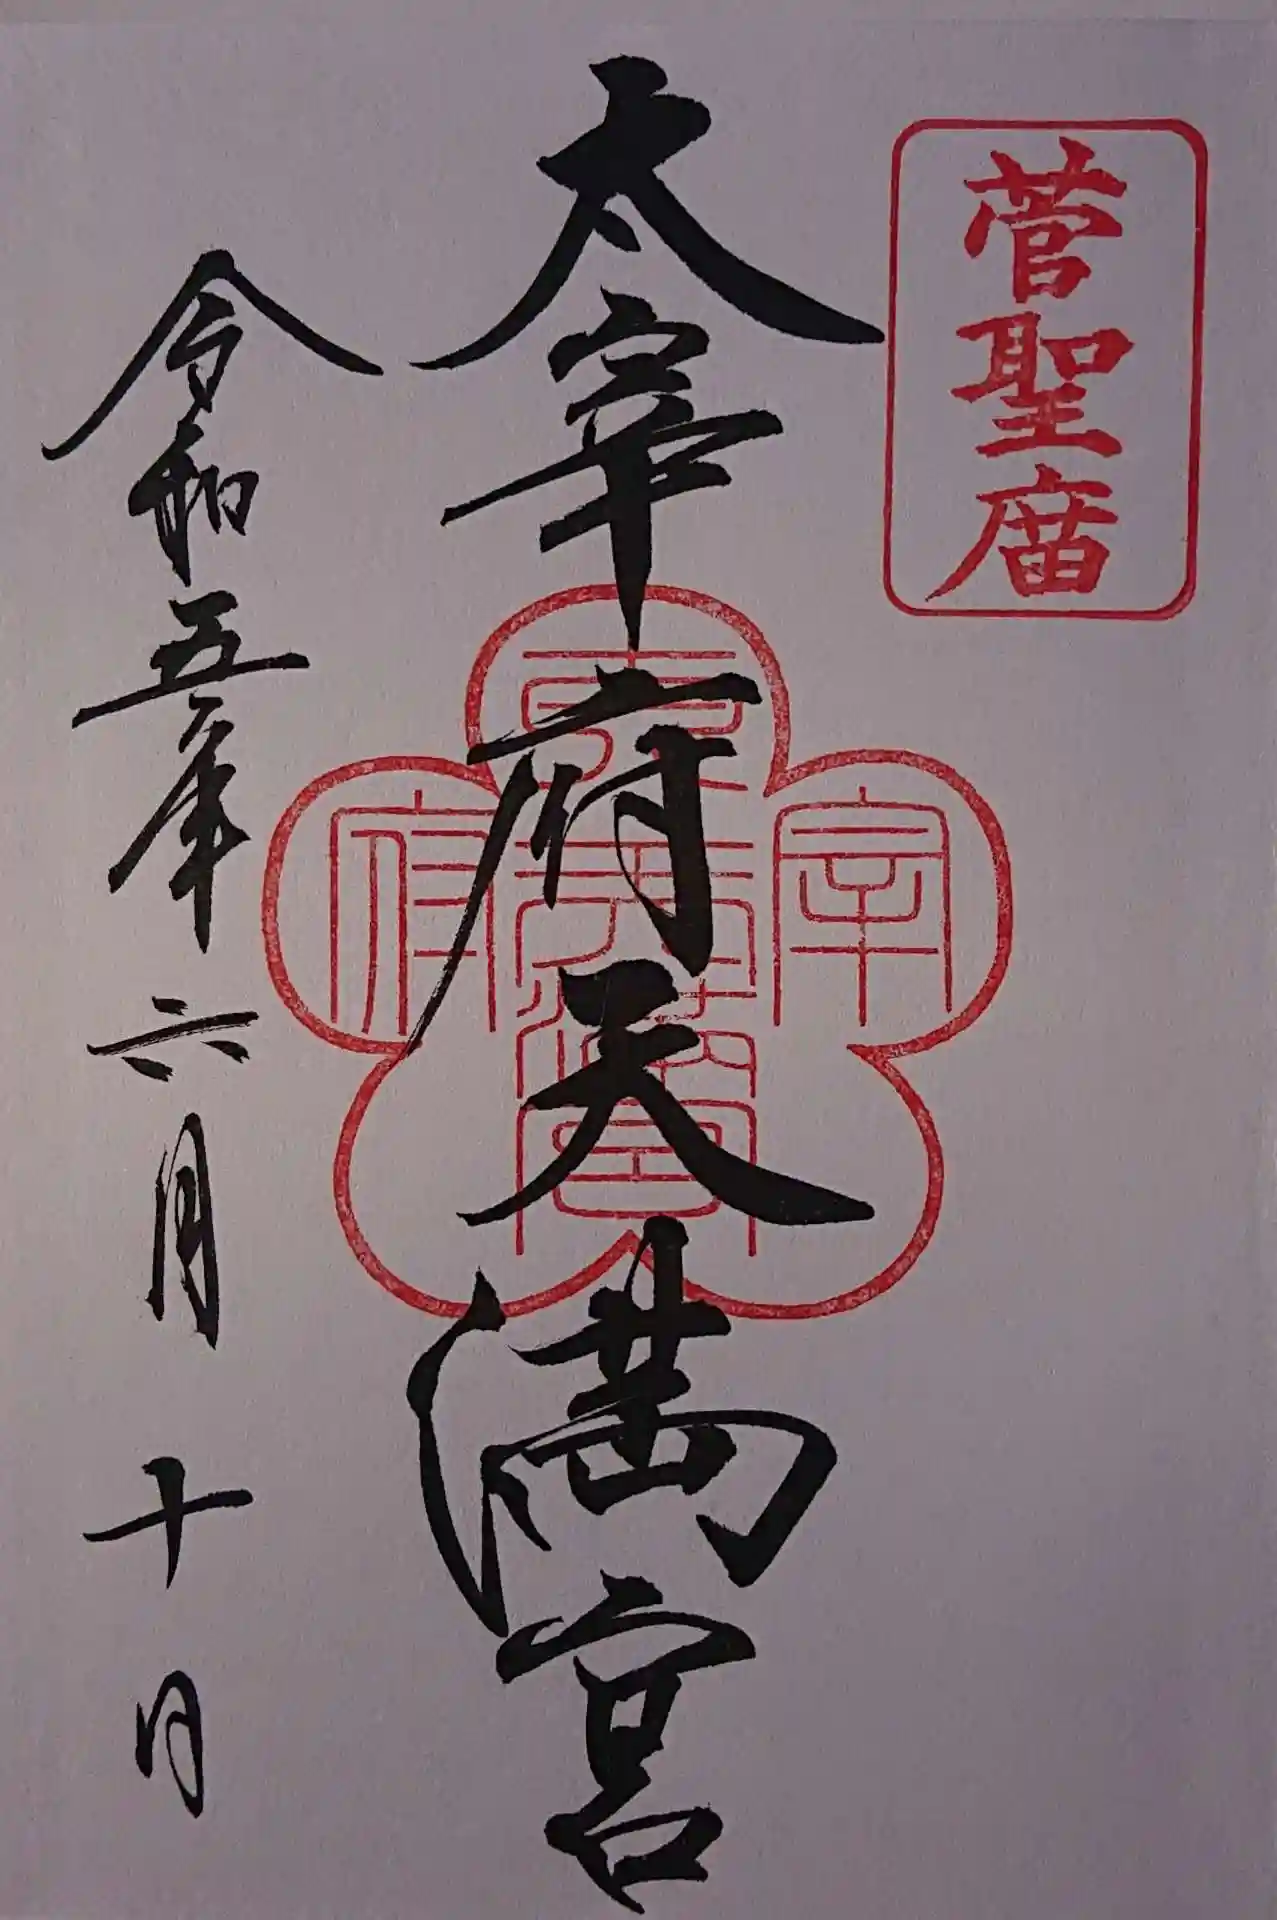 菅聖庿
太宰府天満宮
太宰府天満宮
令和五年六月十日